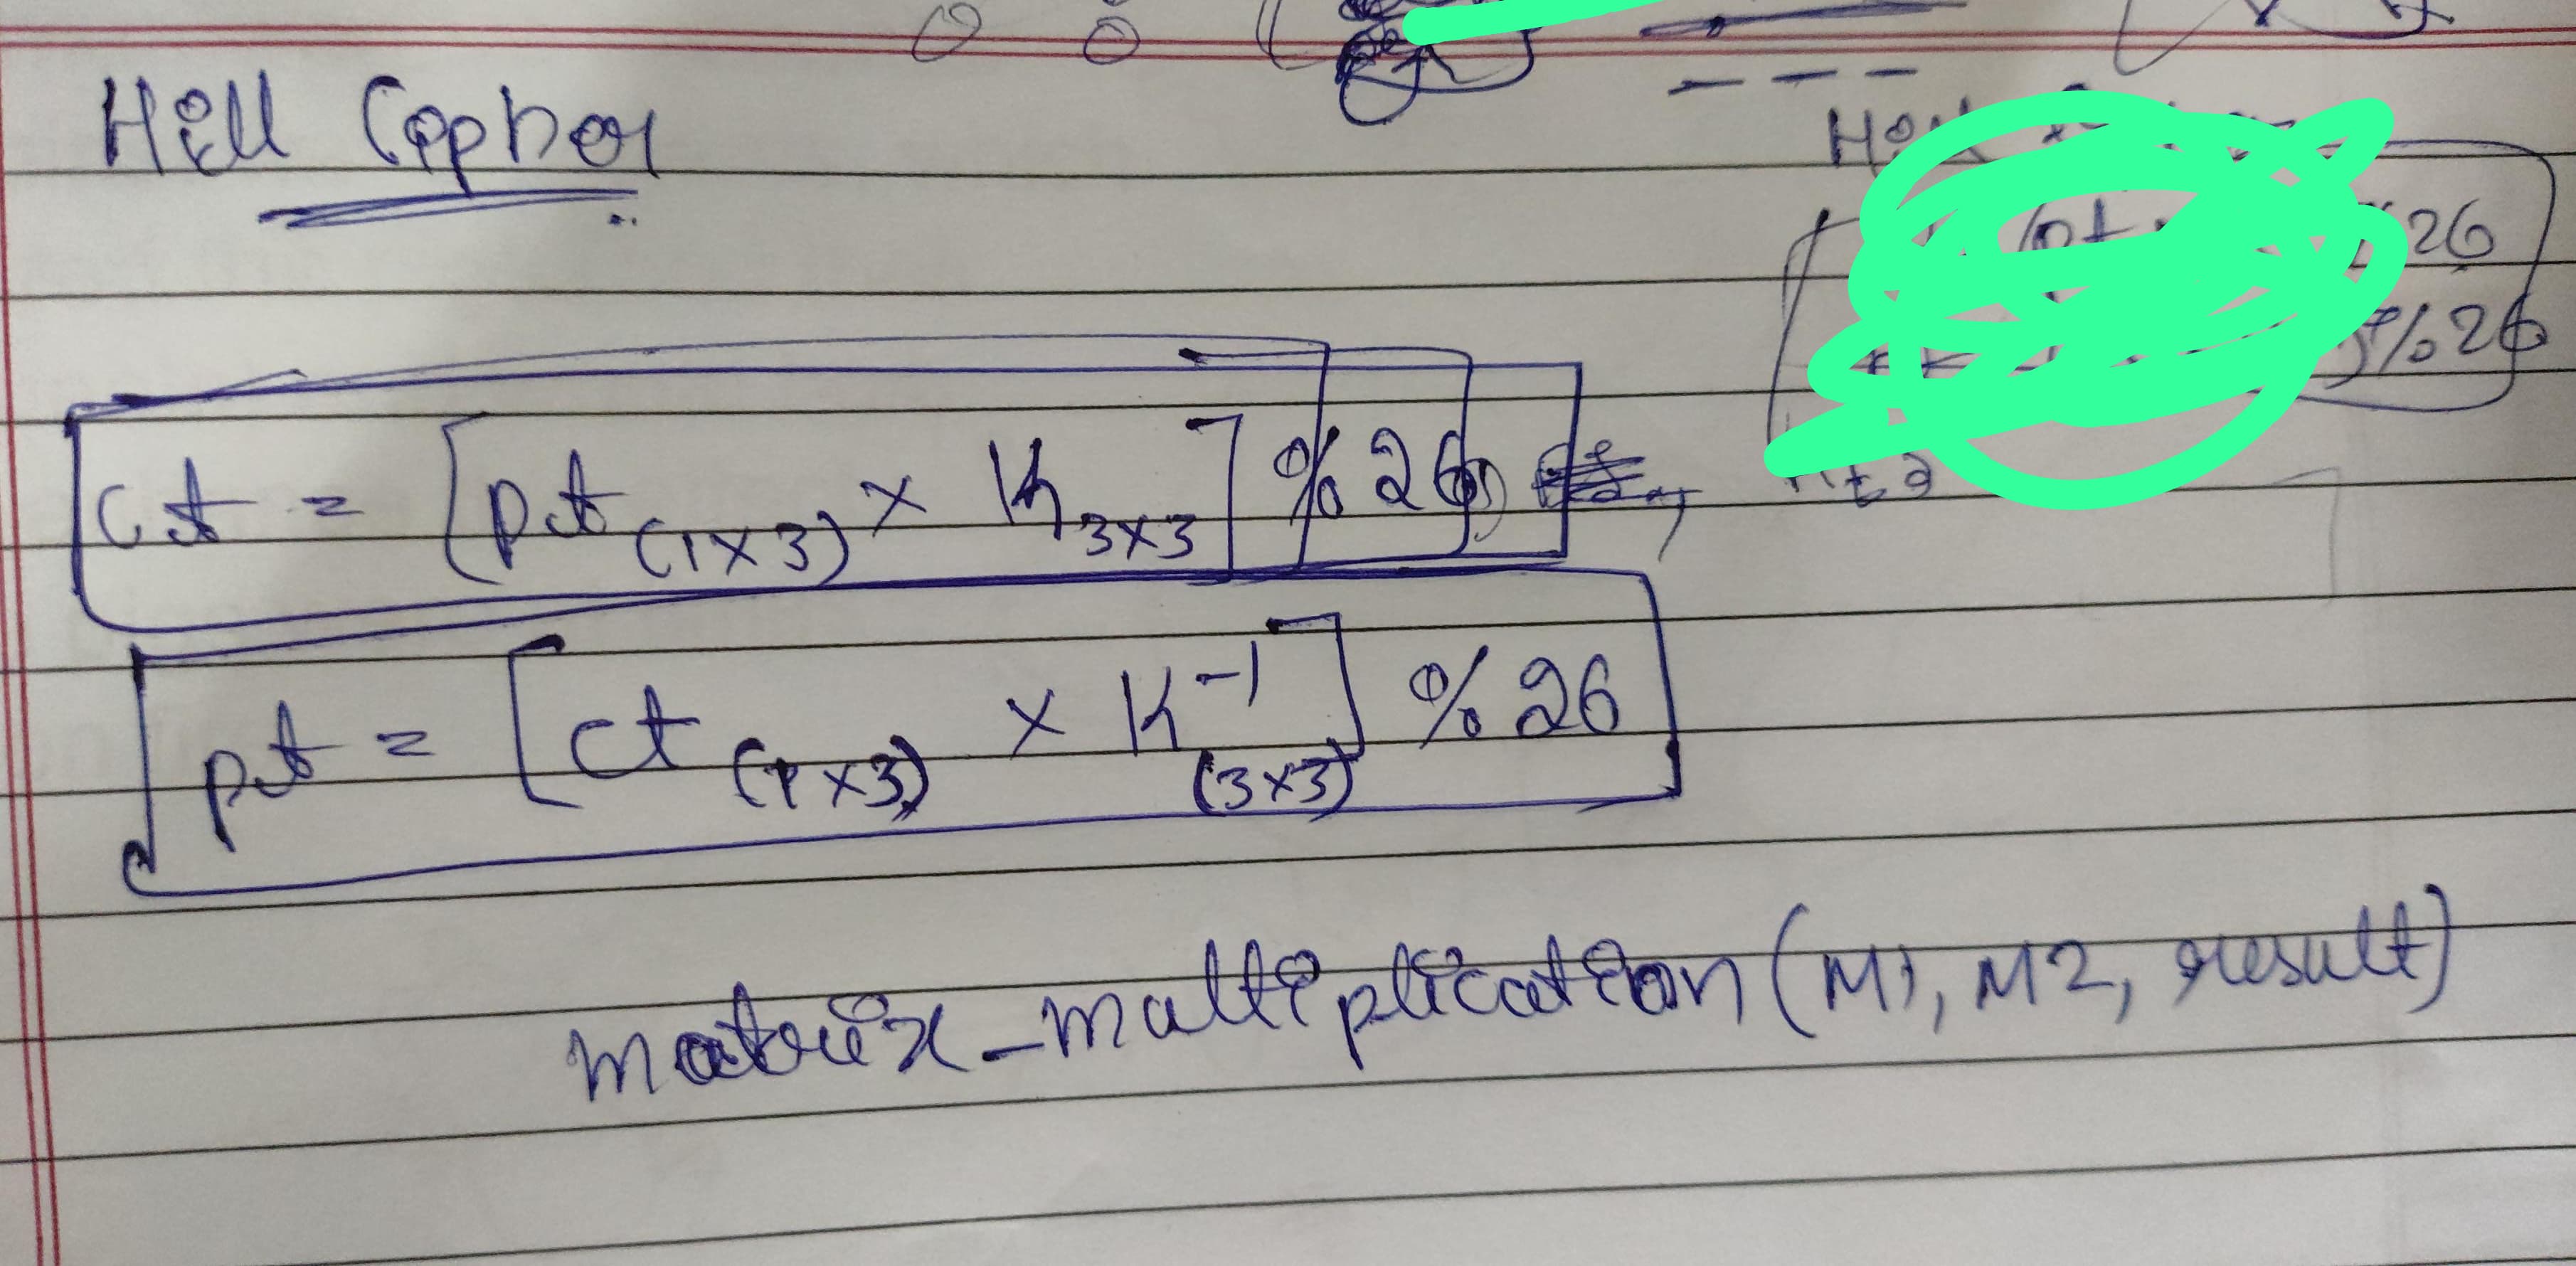 Hill Cipher
26
%26
ct = [pt (1x3) x K 3x3] % 26
pt = [ct (1x3) x K⁻¹ (3x3)] % 26
matrix_multiplication (M1, M2, result)